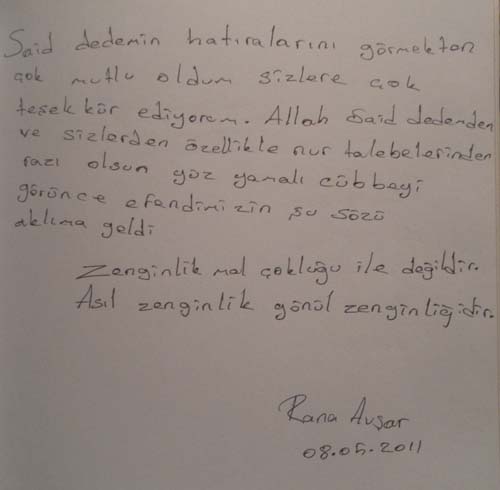 Said dedemin hatıralarını görmekten
çok mutlu oldum sizlere çok
teşekkür ediyorum. Allah Said dedemden
ve sizlerden özellikle nur talebelerinden
razı olsun yüz yamalı cübbeyi
görünce efendimizin şu sözü
aklıma geldi
Zenginlik mal çokluğu ile değildir.
Asıl zenginlik gönül zenginliğidir.
Rana Avşar
08.05.2011